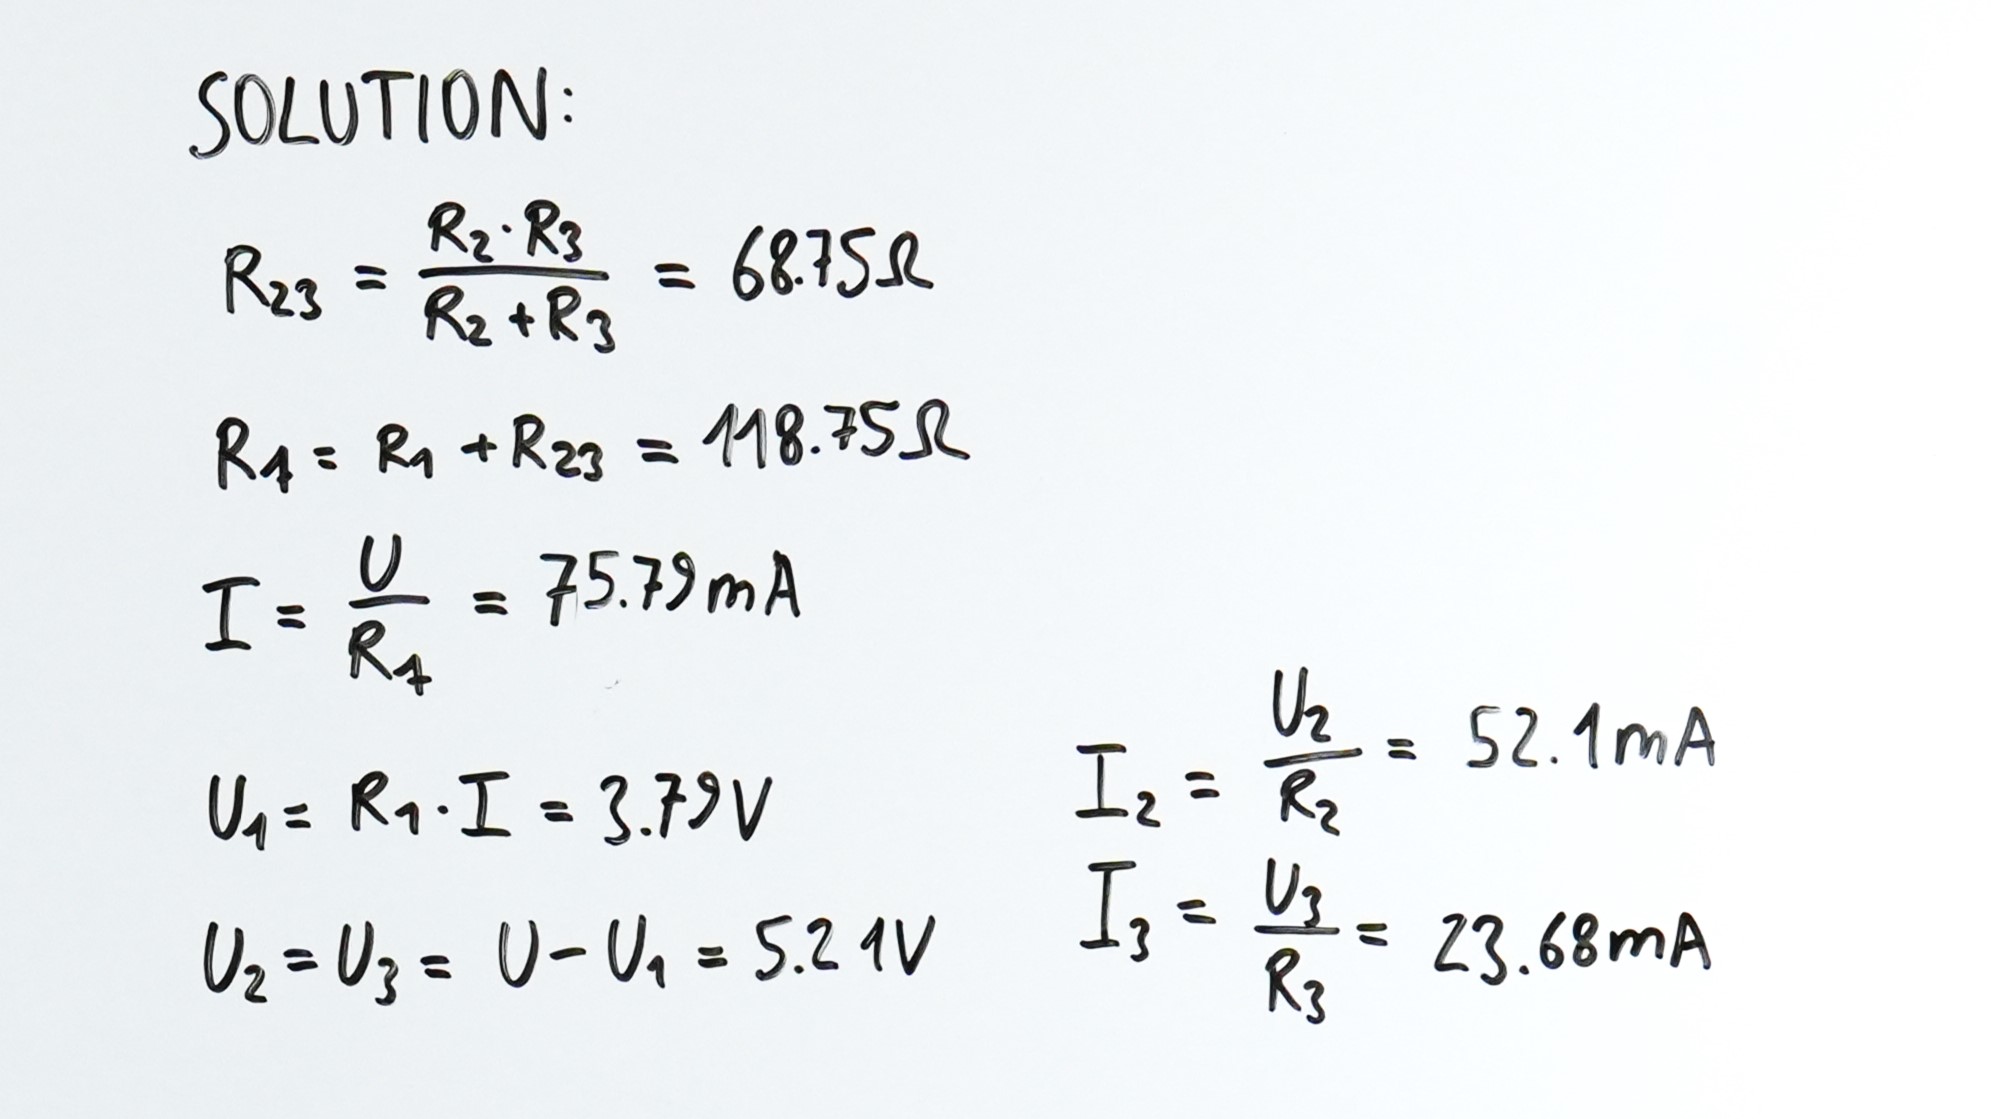 SOLUTION:
R₂₃ = (R₂·R₃)/(R₂+R₃) = 68.75Ω
R₁ = R₁ + R₂₃ = 118.75Ω
I = U/R₁ = 75.79mA
U₁ = R₁·I = 3.79V
U₂ = U₃ = U-U₁ = 5.21V
I₂ = U₂/R₂ = 52.1mA
I₃ = U₃/R₃ = 23.68mA